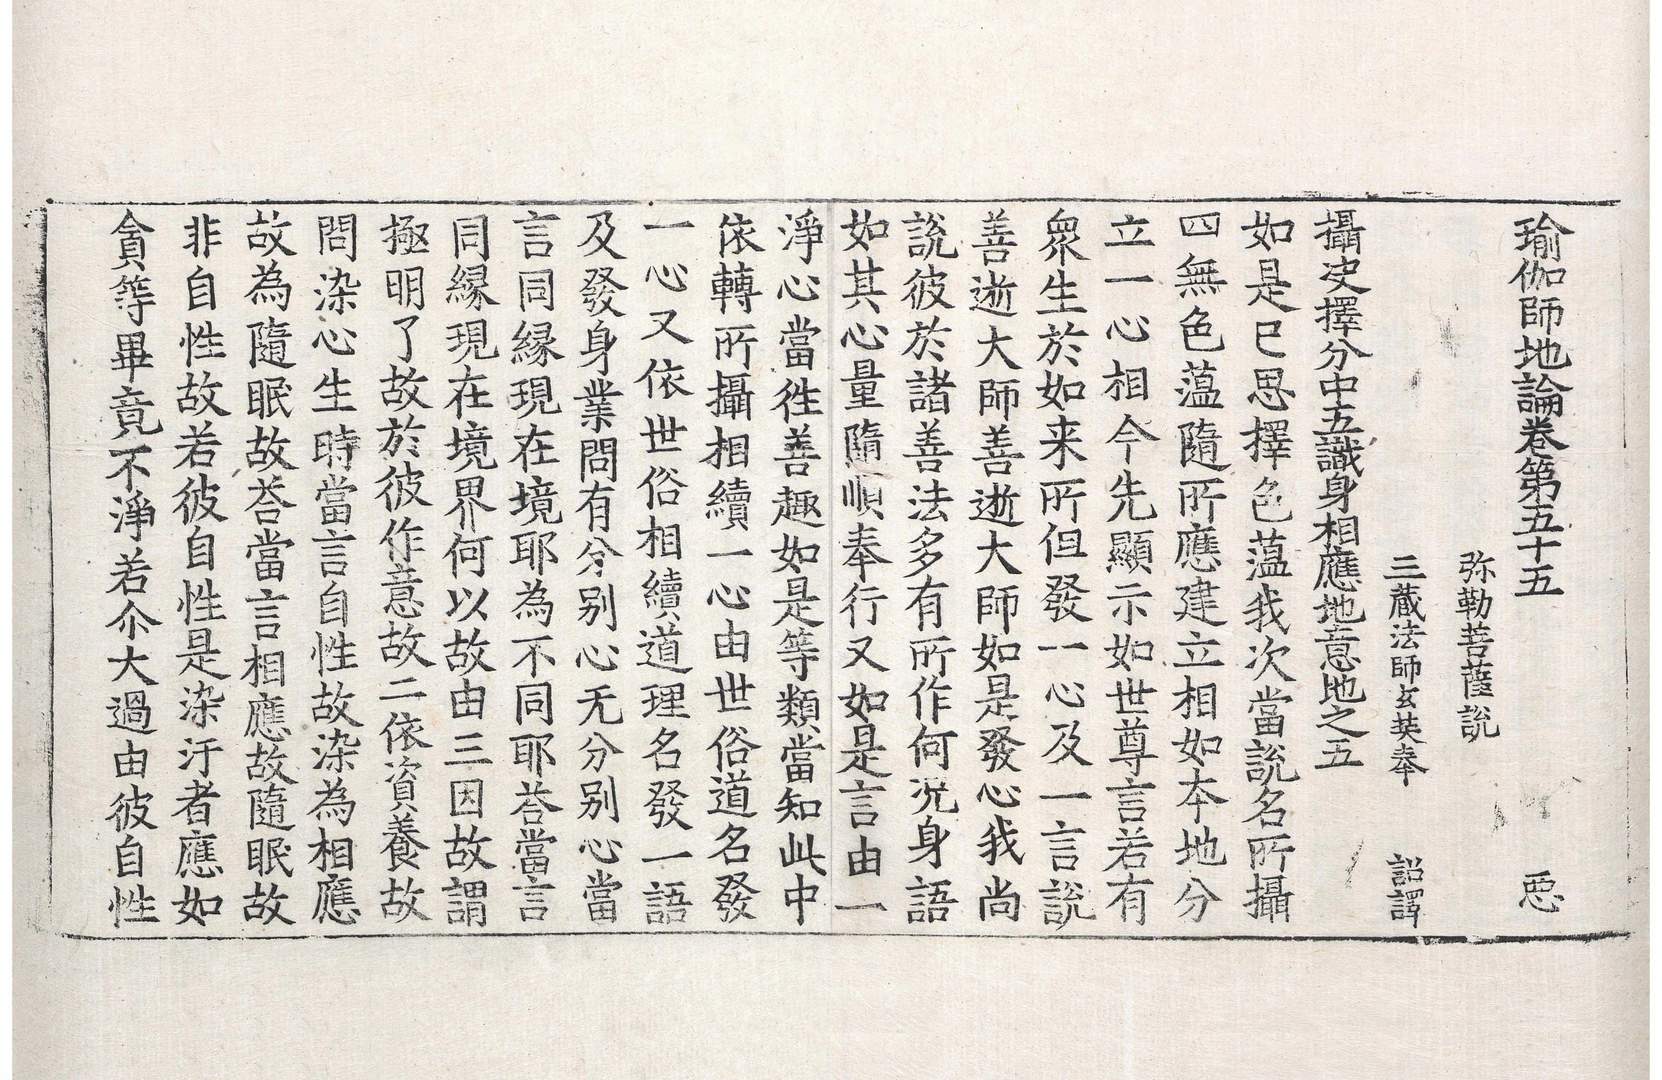 瑜伽師地論卷第五十五 惡
弥勒菩薩說
三藏法師玄奘奉 詔譯
攝决擇分中五識身相應地意地之五
如是已思擇色蕰我次當說名所攝
四無色蕰隨所應建立相如本地分
立一心相今先顯示如世尊言若有
衆生於如来所但發一心及一言說
善逝大師善逝大師如是發心我尚
說彼於諸善法多有所作何况身語
如其心量隨順奉行又如是言由一
淨心當徃善趣如是等類當知此中
依轉所攝相續一心由世俗道名發
一心又依世俗相續道理名發一語
及發身業問有分别心无分别心當
言同縁現在境耶為不同耶荅當言
同縁現在境界何以故由三因故謂
極明了故於彼作意故二依資養故
問染心生時當言自性故染為相應
故為隨眠故荅當言相應故隨眠故
非自性故若彼自性是染汙者應如
貪等畢竟不淨若尒大過由彼自性